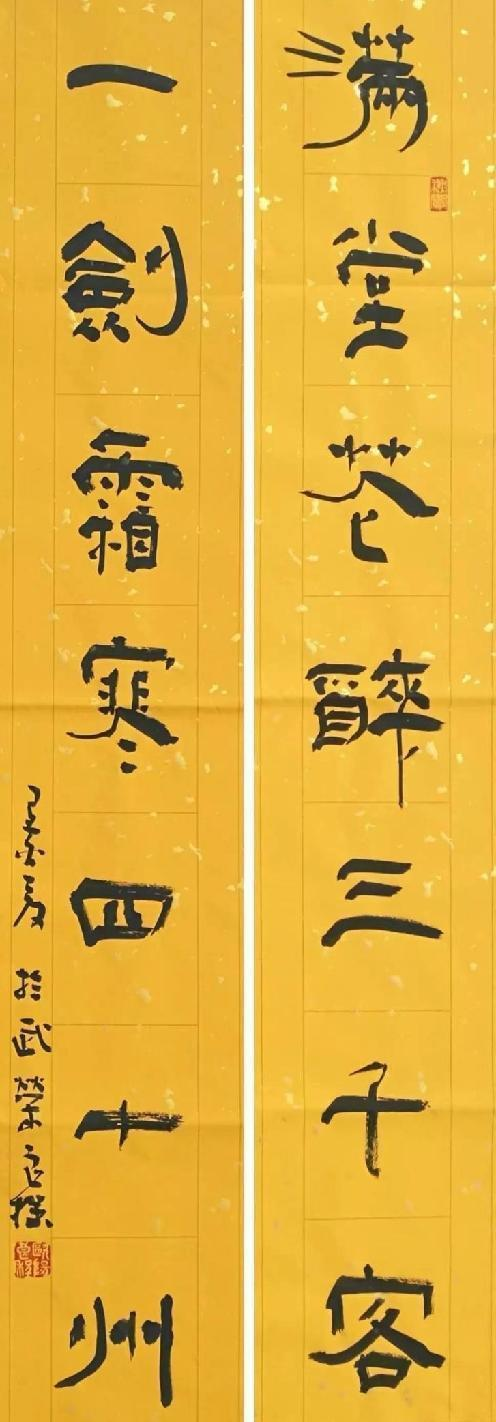 滿堂花醉三千客
一劍霜寒四十州
夏於武榮